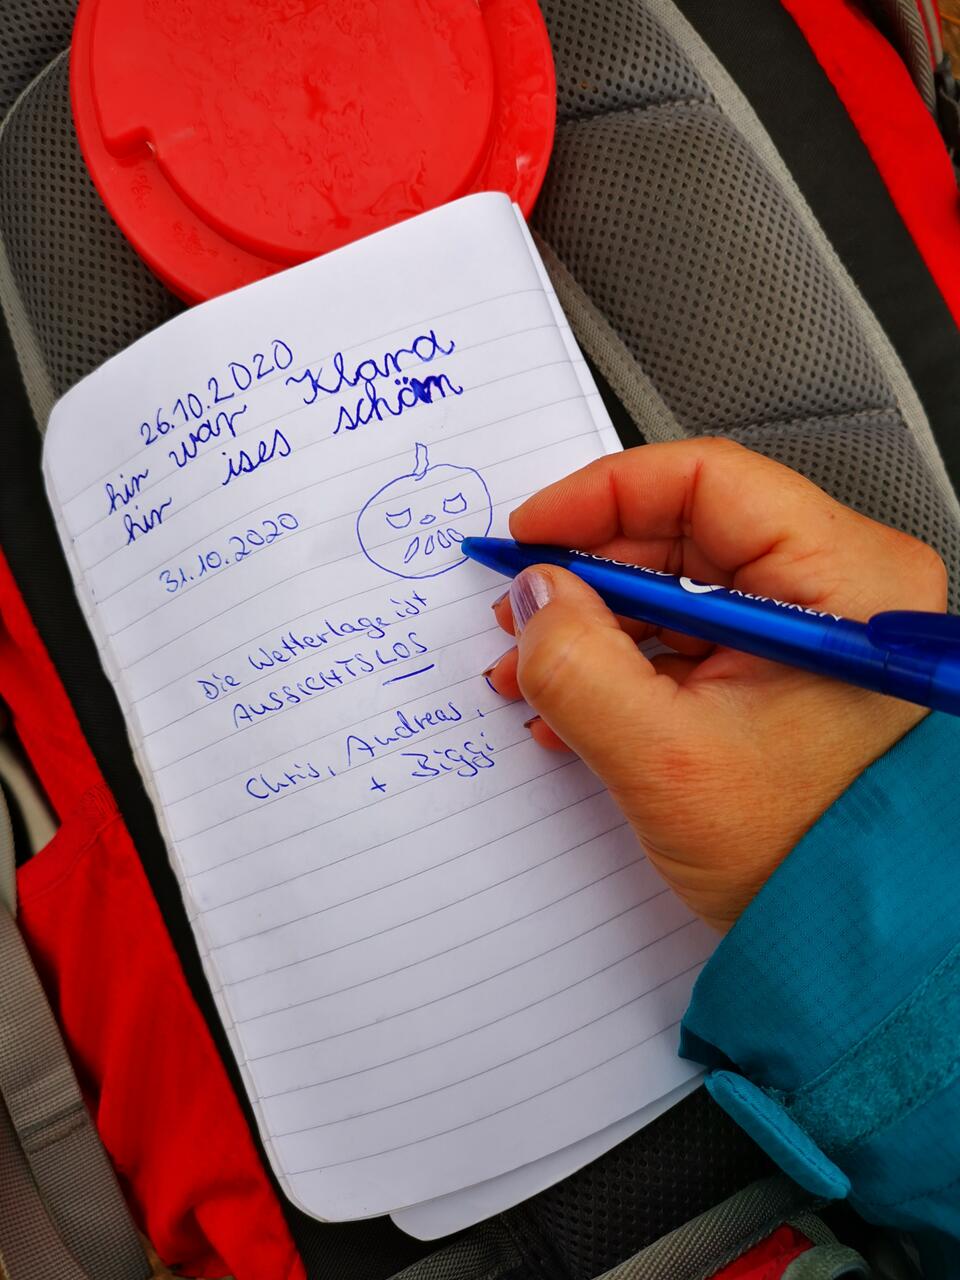 26.10.2020
hir war Klara
hir ises schöm
31.10.2020
Die Wetterlage ist
AUSSICHTSLOS
Chris, Andreas,
+ Biggi
REGIOMED KLINIKEN